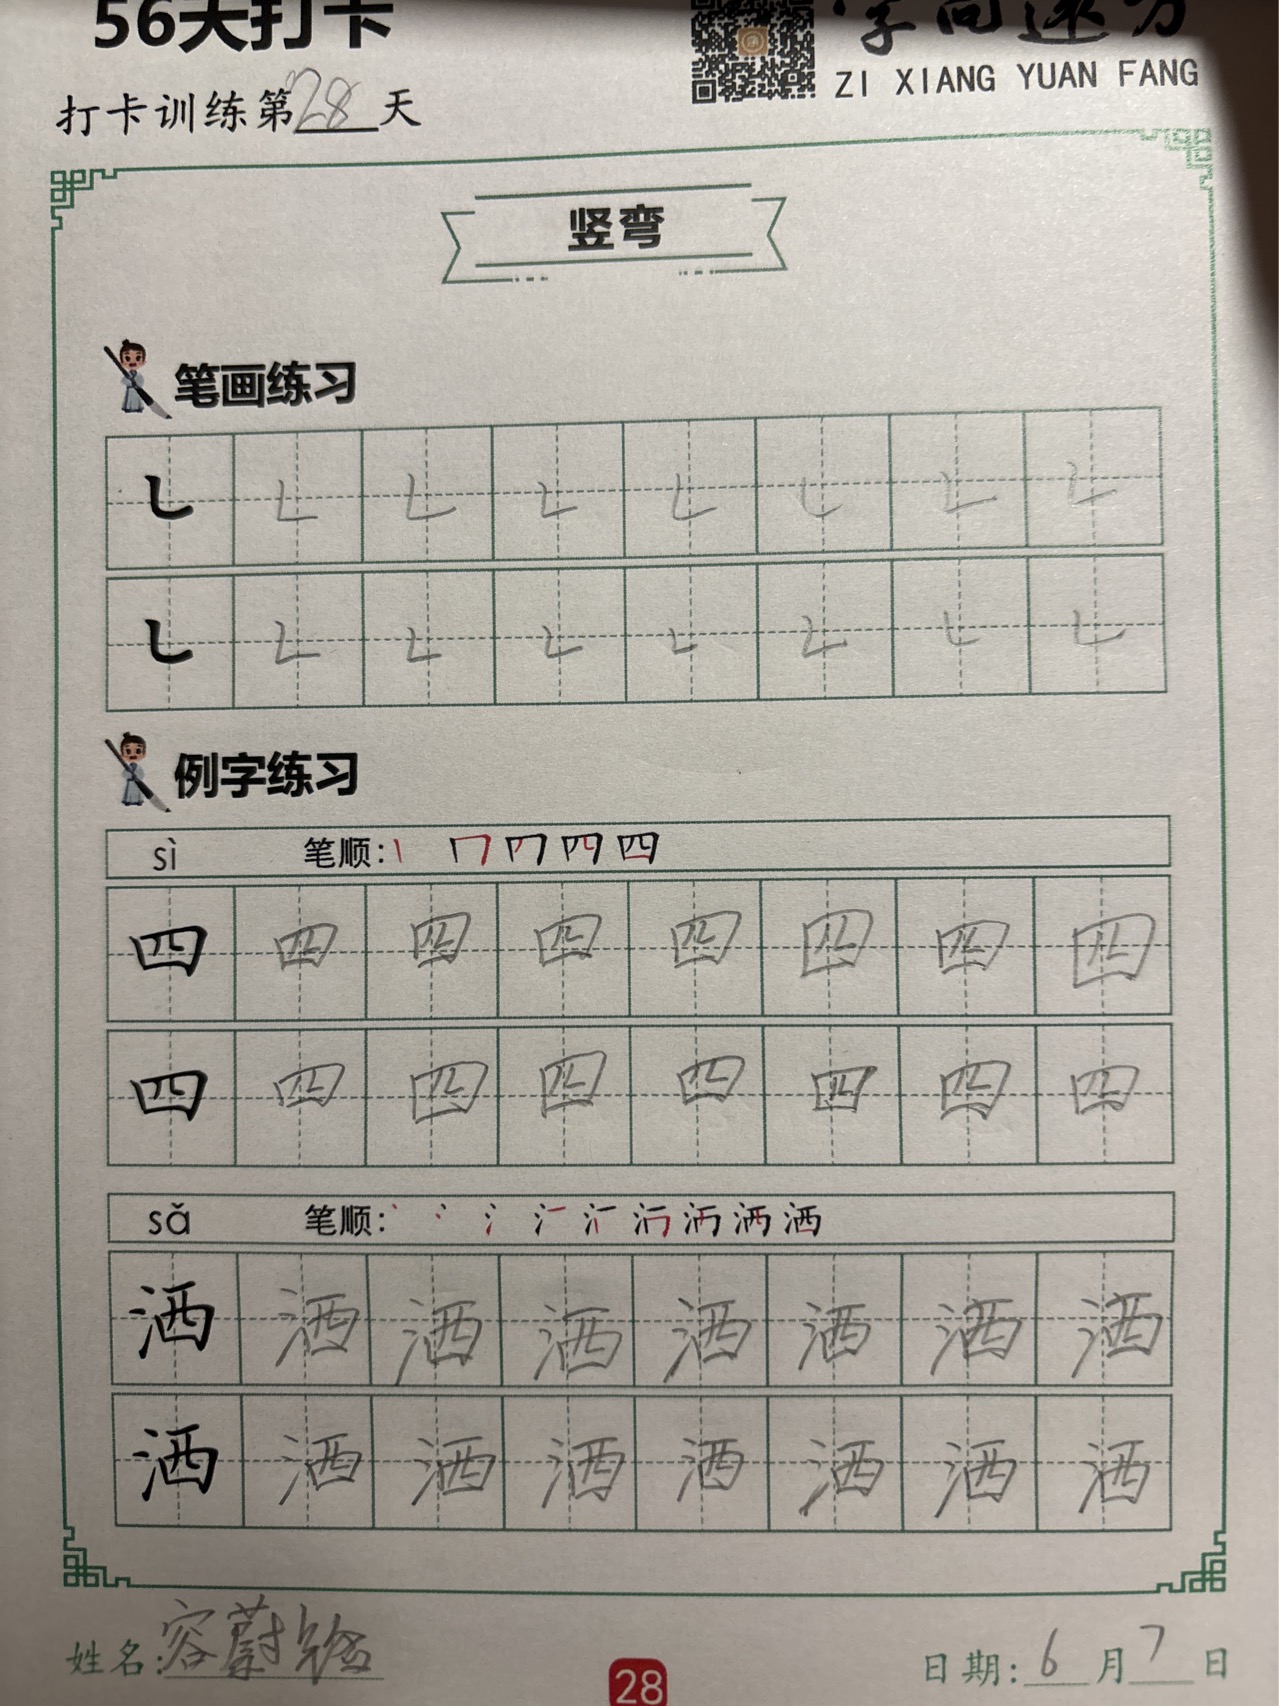 56天打卡
字向速方
ZI XIANG YUAN FANG
打卡训练第28天
竖弯
笔画练习
例字练习
sì 笔顺:
四 四 四 四 四 四 四 四
四 四 四 四 四 四 四 四
sǎ 笔顺: 洒
洒 洒 洒 洒 洒 洒 洒 洒
洒 洒 洒 洒 洒 洒 洒 洒
姓名:容蔚
28
日期:6月7日